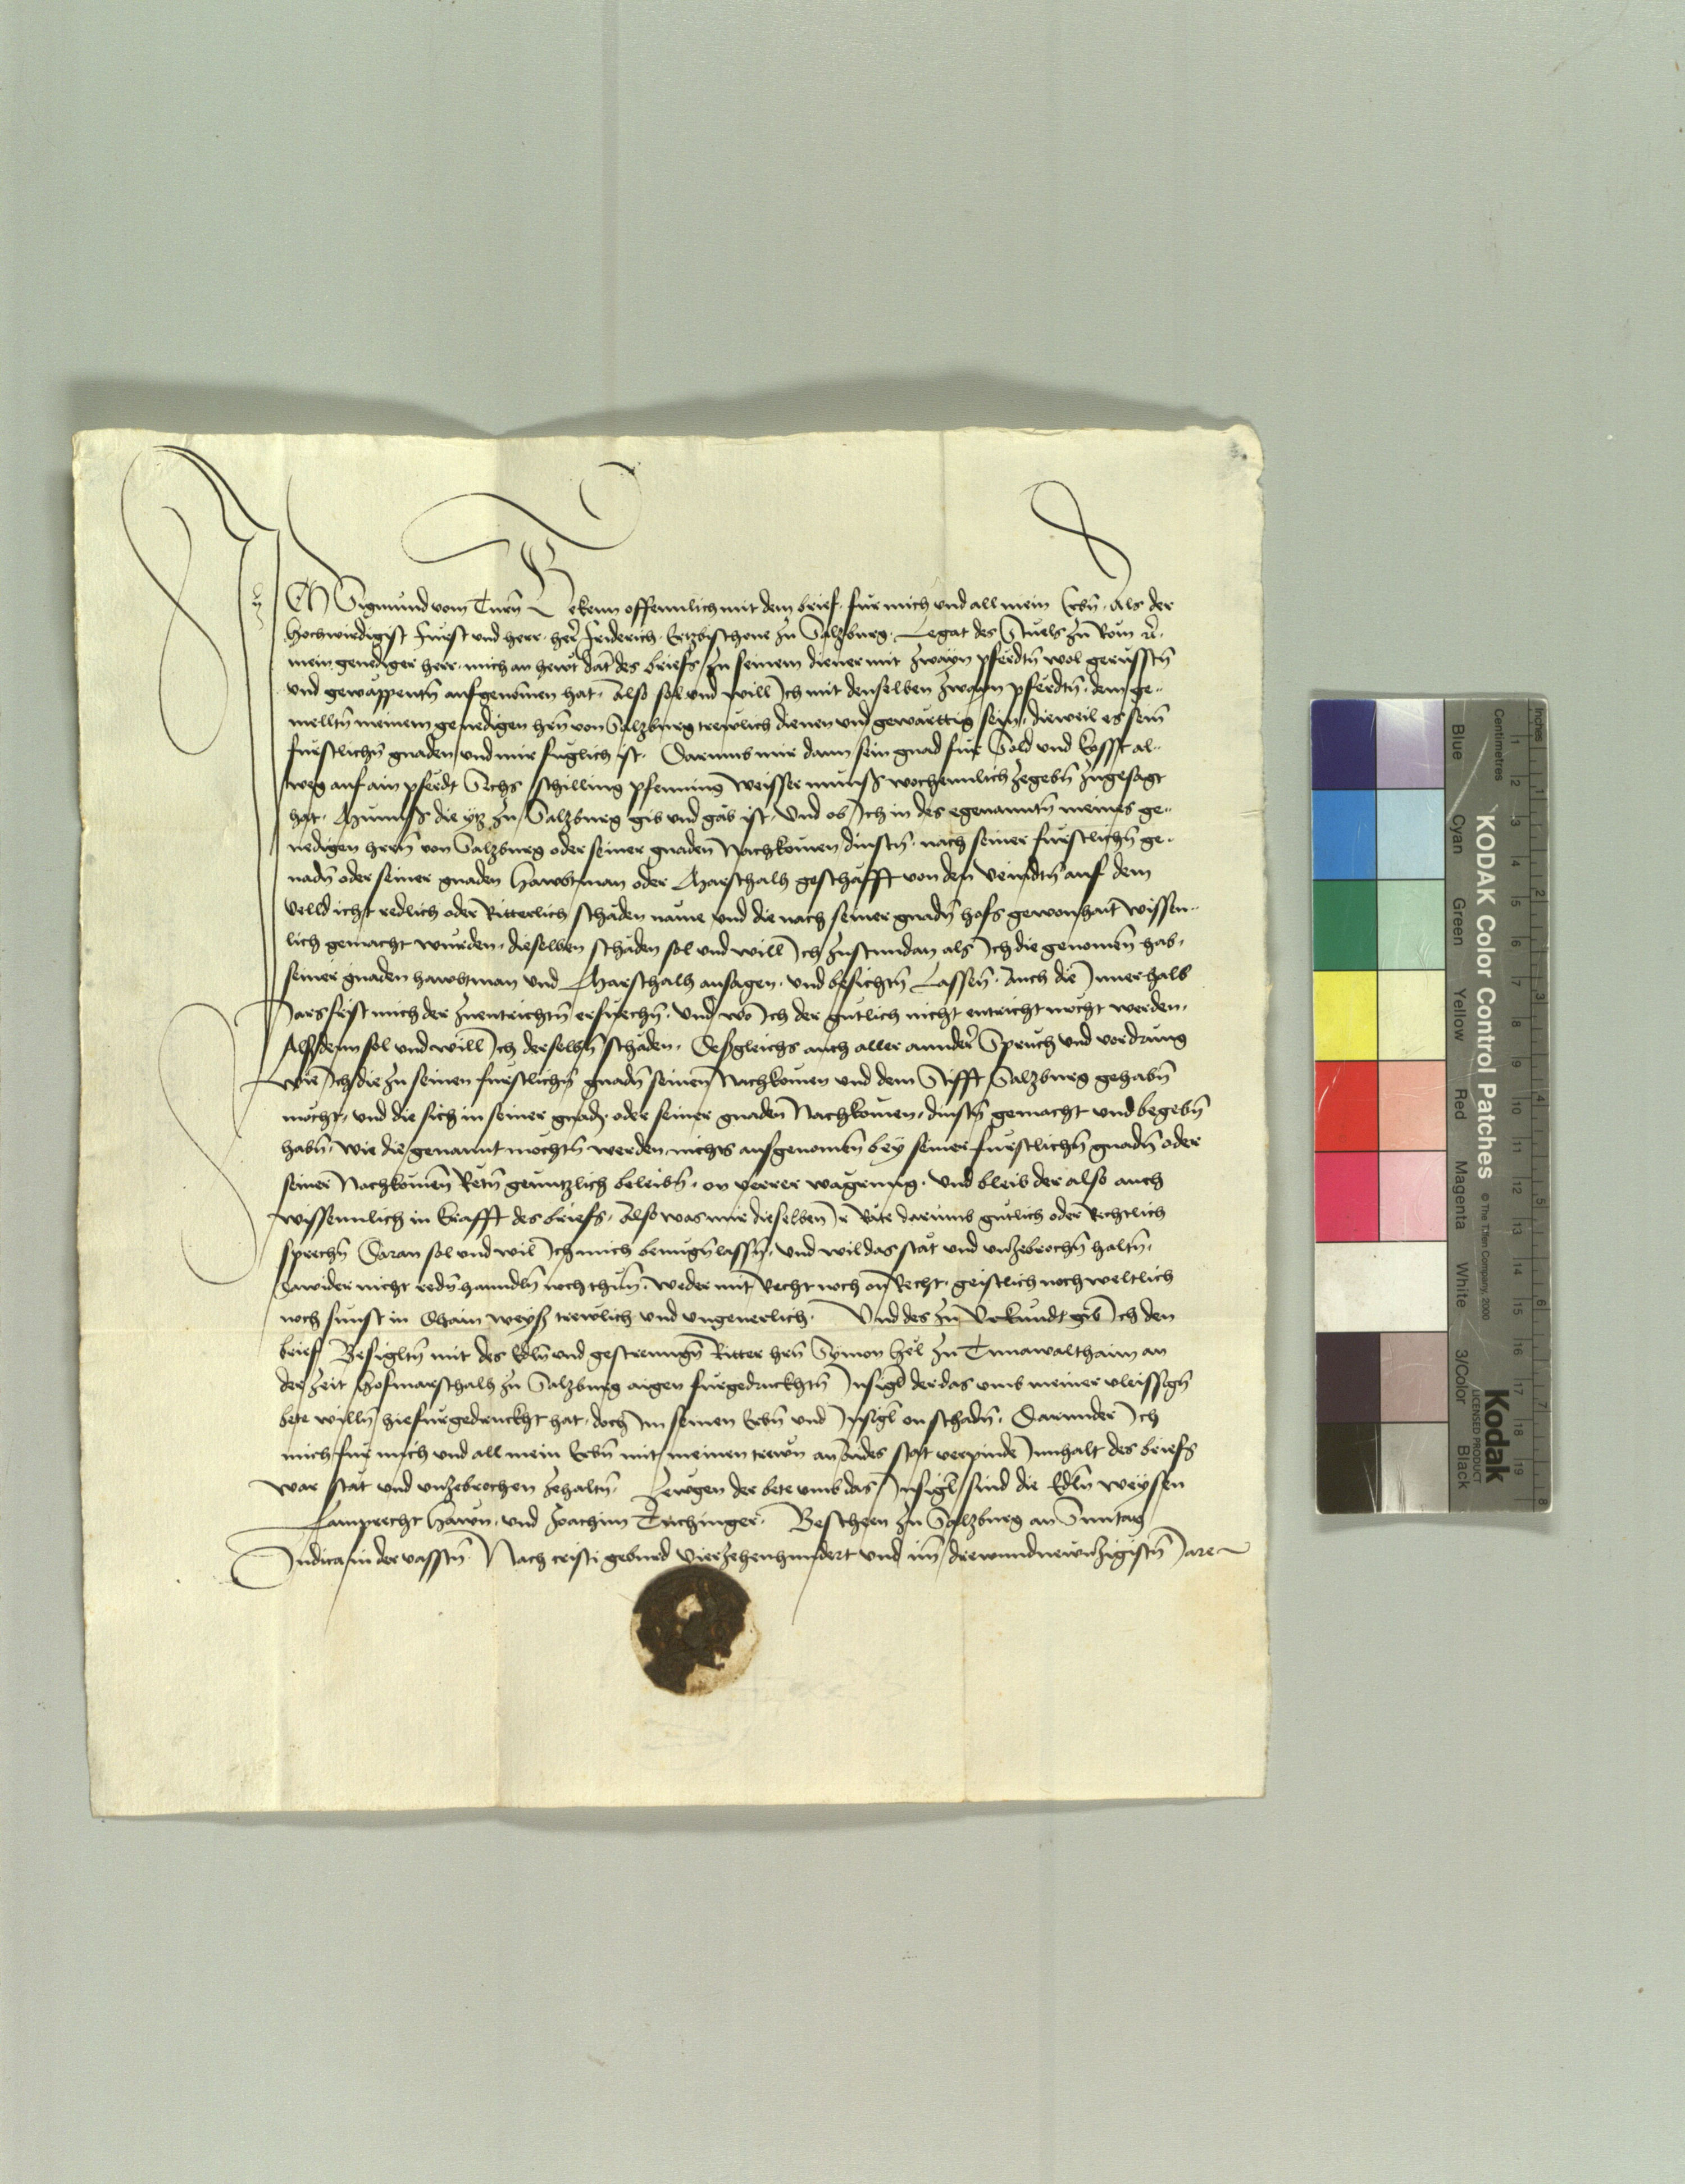 ICH Sigmund vom Turn Bekenn offennlich mit dem brief fur mich und all mein Erbn Als der
Hochwirdigist Furst und herr her Friderich Ertzbischoue zu Salzburg Legat des Stuels zu Rom rc
mein genediger herr mich an hewt dat des briefs zu seinem diener mit zwayn pferdtn wol gerusstn
und gewappentn aufgenomen hat Also sol und will Ich mit denselben zwayn pferdtn dem ge-
melltn meinem genedigen hrn von Salzburg trewlich dienen und gewarttig sein dieweil es sein
furstlichn gnaden und mir fuglich ist Darumb mir dann sein gnad fur Sold und Cosst al-
weg auf ain pferdt Sechs schilling pfenning Weisser munss wochennlich zegebn zugesagt
hat Munss die ytz zu Salzburg gib und gab ist Und ob Ich in des egenanntn meines ge-
nedigen herrn von Salzburg oder seiner gnaden Nachkomen dinstn nach seiner furstlichn ge-
nadn oder seiner gnaden Hawbtman oder Marschalh geschafft von den veindtn auf dem
velld icht redlich oder Ritterlich schaden name und die nach seiner gnadn hofs gewonhait wissen-
lich gemacht wurden dieselben schaden sol und will Ich zustundan als Ich die genomen hab
seiner gnaden hawbtman und Marschalh ansagen und besichtn Lassen Auch die Innerhalb
Jarsfrist mich der zuentrichtn ersuechn Und wo Ich der gutlich nicht entricht mocht werden
Alssdenn sol und will Ich derselbn schaden Dessgleichs auch aller annder Spruch und vordrung
wie Ich die zu seinen furstlichn gnadn seinen Nachkomen und dem Stifft Salzburg gehabn
mocht und die sich in seiner gnadn oder seiner gnaden Nachkomen dinstn gemacht und begebn
habn wie die genannt mochtn werden nichts ausgenomen bey seiner furstlichn gnadn oder
seiner Nachkomen Retn genntzlich beleibn on verrer wagrung Und bleib der also auch
wissennlich in Crafft des briefs Also was mir dieselben Ir Räte darumb gutlich oder Rechtlich
sprechn Daran sol und wil Ich mich benugn lassn und wil das stat und unzebrochn haltn
dawider nicht redn hanndln noch thun Weder mit Recht noch on Recht geistlich noch weltlich
noch sunst in Chain weyss trewlich und ungeuerlich Und des zu Urkundt gib Ich den
brief Besigltn mit des Edln und gestrenngn Ritter hrn Symon zu an
der Zeit Hofmarschalh zu Salzburg aigen furgedruckhtn Insigl der das umb meiner vleissign
bete willn hiefurgedruckht hat doch Im seinen Erbn und Insigl on schadn Darunder Ich
mich fur mich und all mein Erbn mit meinen trewn an aides stat verpinde Innhalt des briefs
war stat und unzebrochen zehaltn Zewgen der bete umb das Insigl sind die Edln weysen
Lamprecht Hawn und Joachim Trichinger Bescheen zu Salzburg an Sunntag
Judica in der vasstn Nach cristi geburd Vierzehenhundert und im drewundnewnzigistn Jare
KODAK Color Control Patches
© The Tiffen Company, 2000
Kodak
LICENSED PRODUCT
Blue Cyan Green Yellow Red Magenta White 3/Color Black
Inches 1 2 3 4 5 6 7 8
Centimetres 1 2 3 4 5 6 7 8 9 10 11 12 13 14 15 16 17 18 19